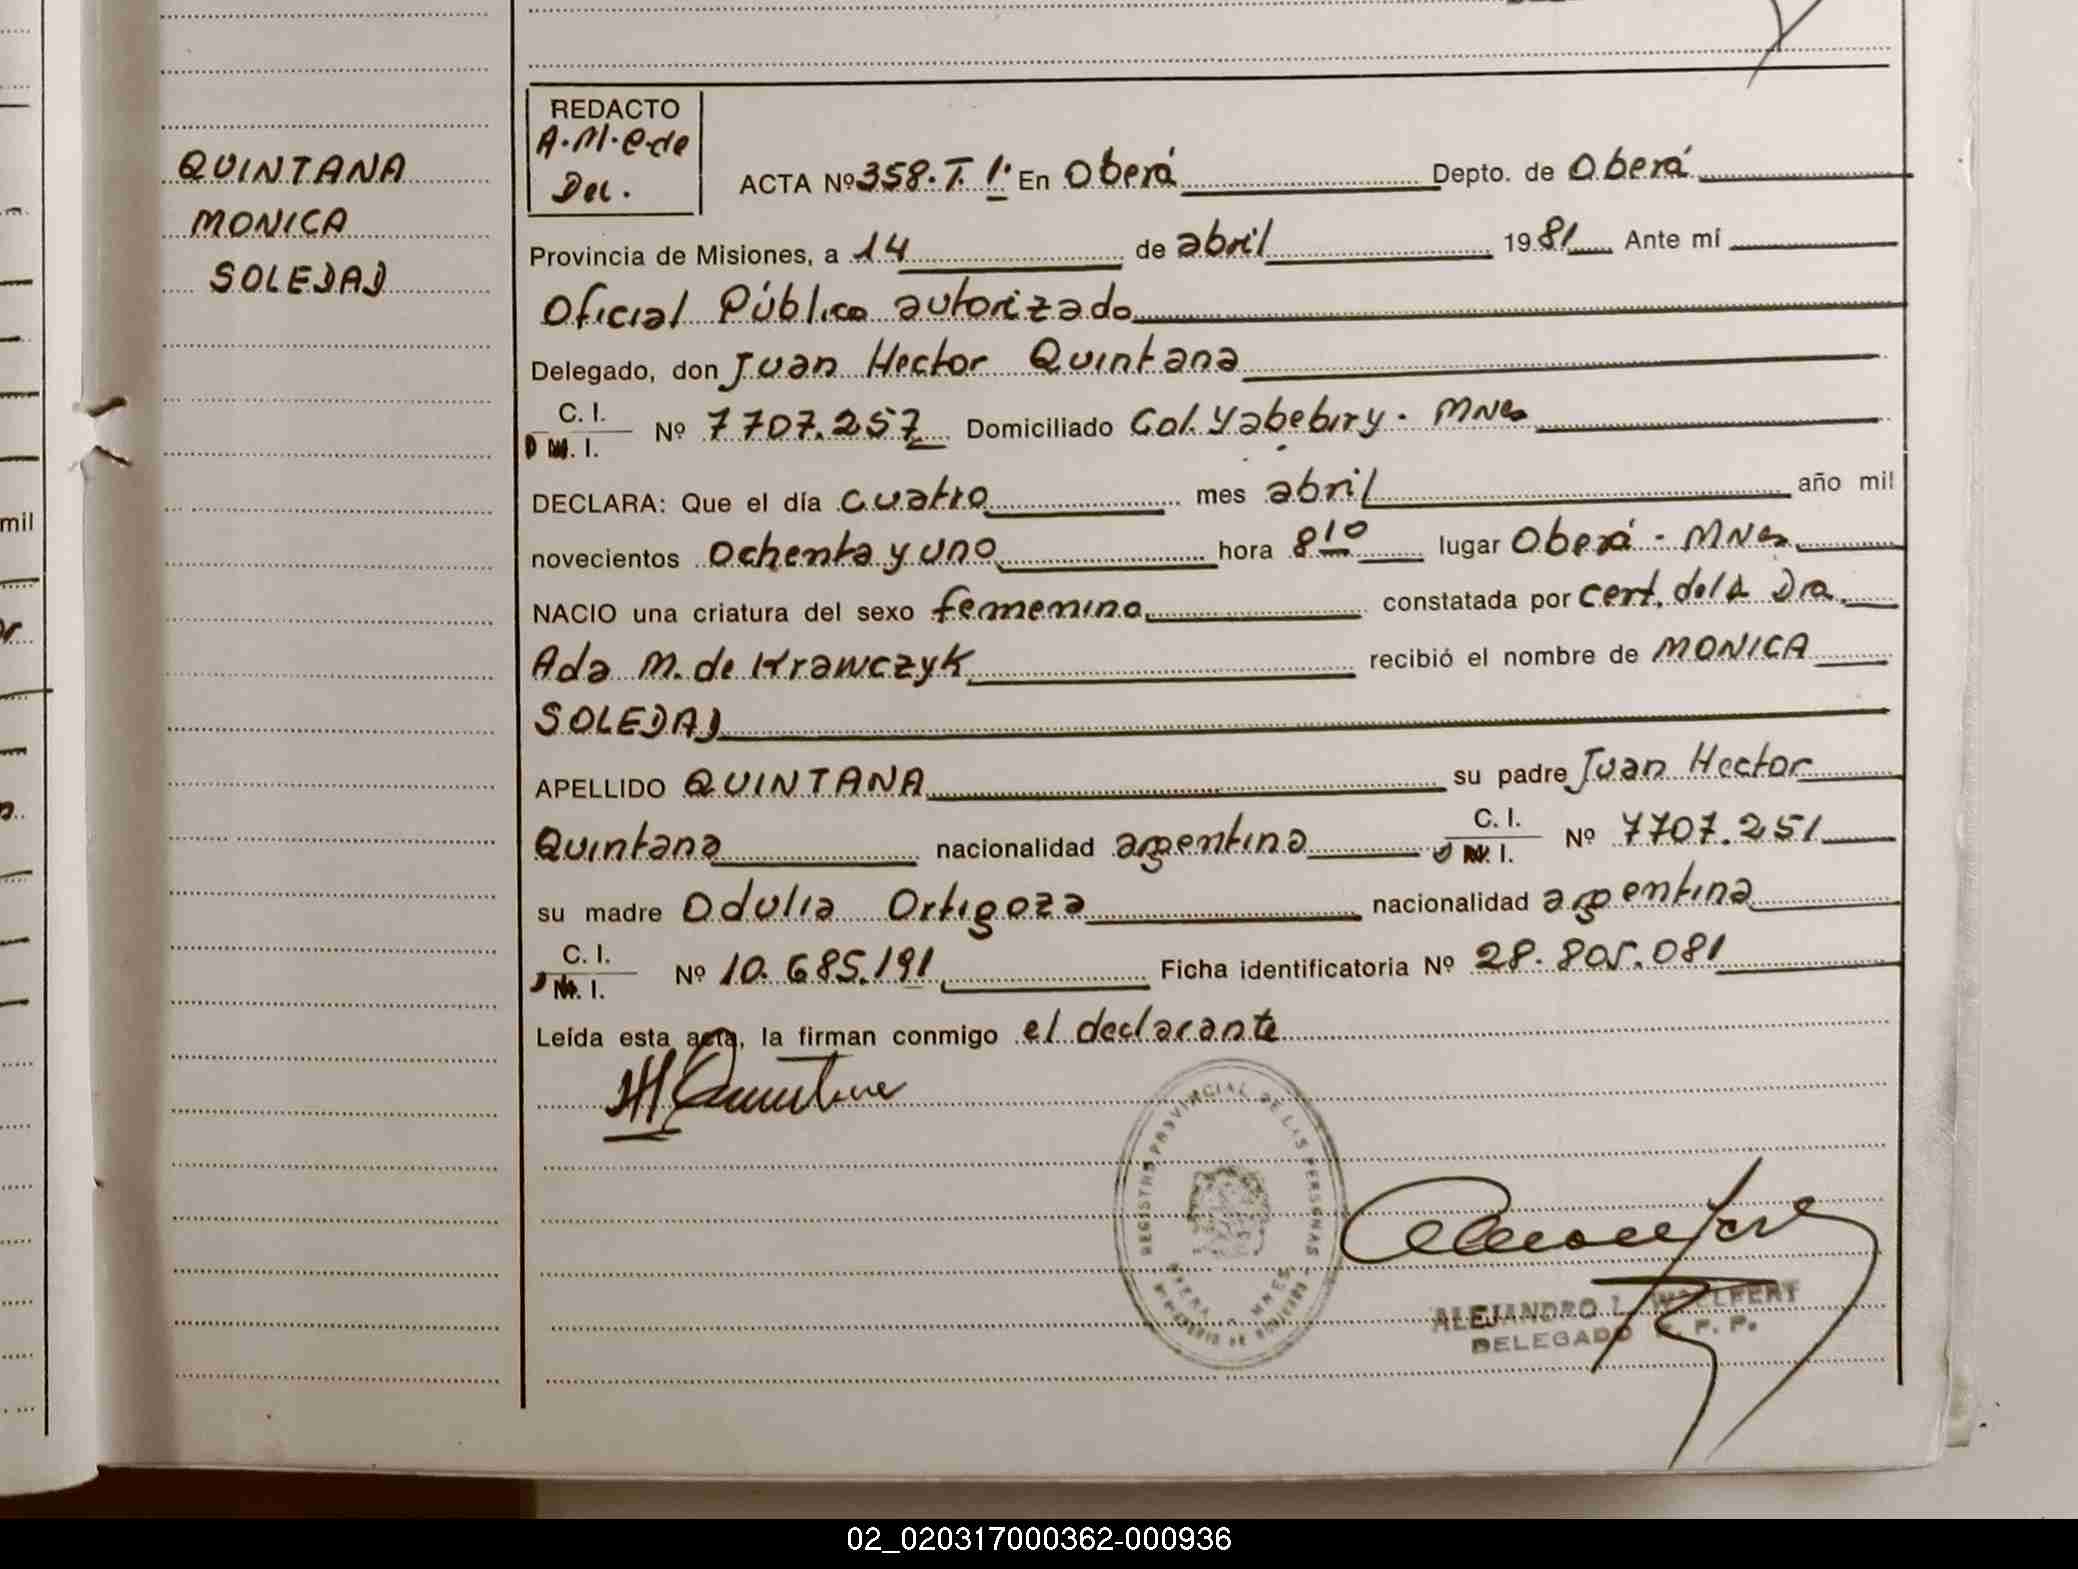 QUINTANA
MONICA
SOLEDAD
REDACTO
A.M.e.de
Del.
ACTA Nº 358.T.1º En Oberá Depto. de Oberá
Provincia de Misiones, a 14 de abril 1981 Ante mí
Oficial Público autorizado
Delegado, don Juan Hector Quintana
C. I.
D M. I. Nº 7707.257 Domiciliado Col. Yabebiry. MNes
DECLARA: Que el día cuatro mes abril año mil
novecientos ochenta y uno hora 8 10 lugar Oberá - MNes
NACIO una criatura del sexo femenino constatada por cert. de la Dra.
Ada M. de Krawczyk recibió el nombre de MONICA
SOLEDAD
APELLIDO QUINTANA su padre Juan Hector
Quintana nacionalidad argentina C. I. Nº 7707.251
M. I.
su madre Odulia Ortigoza nacionalidad argentina
C. I.
M. I. Nº 10.685.191 Ficha identificatoria Nº 28.805.081
Leída esta acta, la firman conmigo el declarante
JHQuintana
REGISTRO PROVINCIAL DE LAS PERSONAS
MNES.
ALEJANDRO L.
DELEGADO R. P. P.
mil
02_020317000362-000936